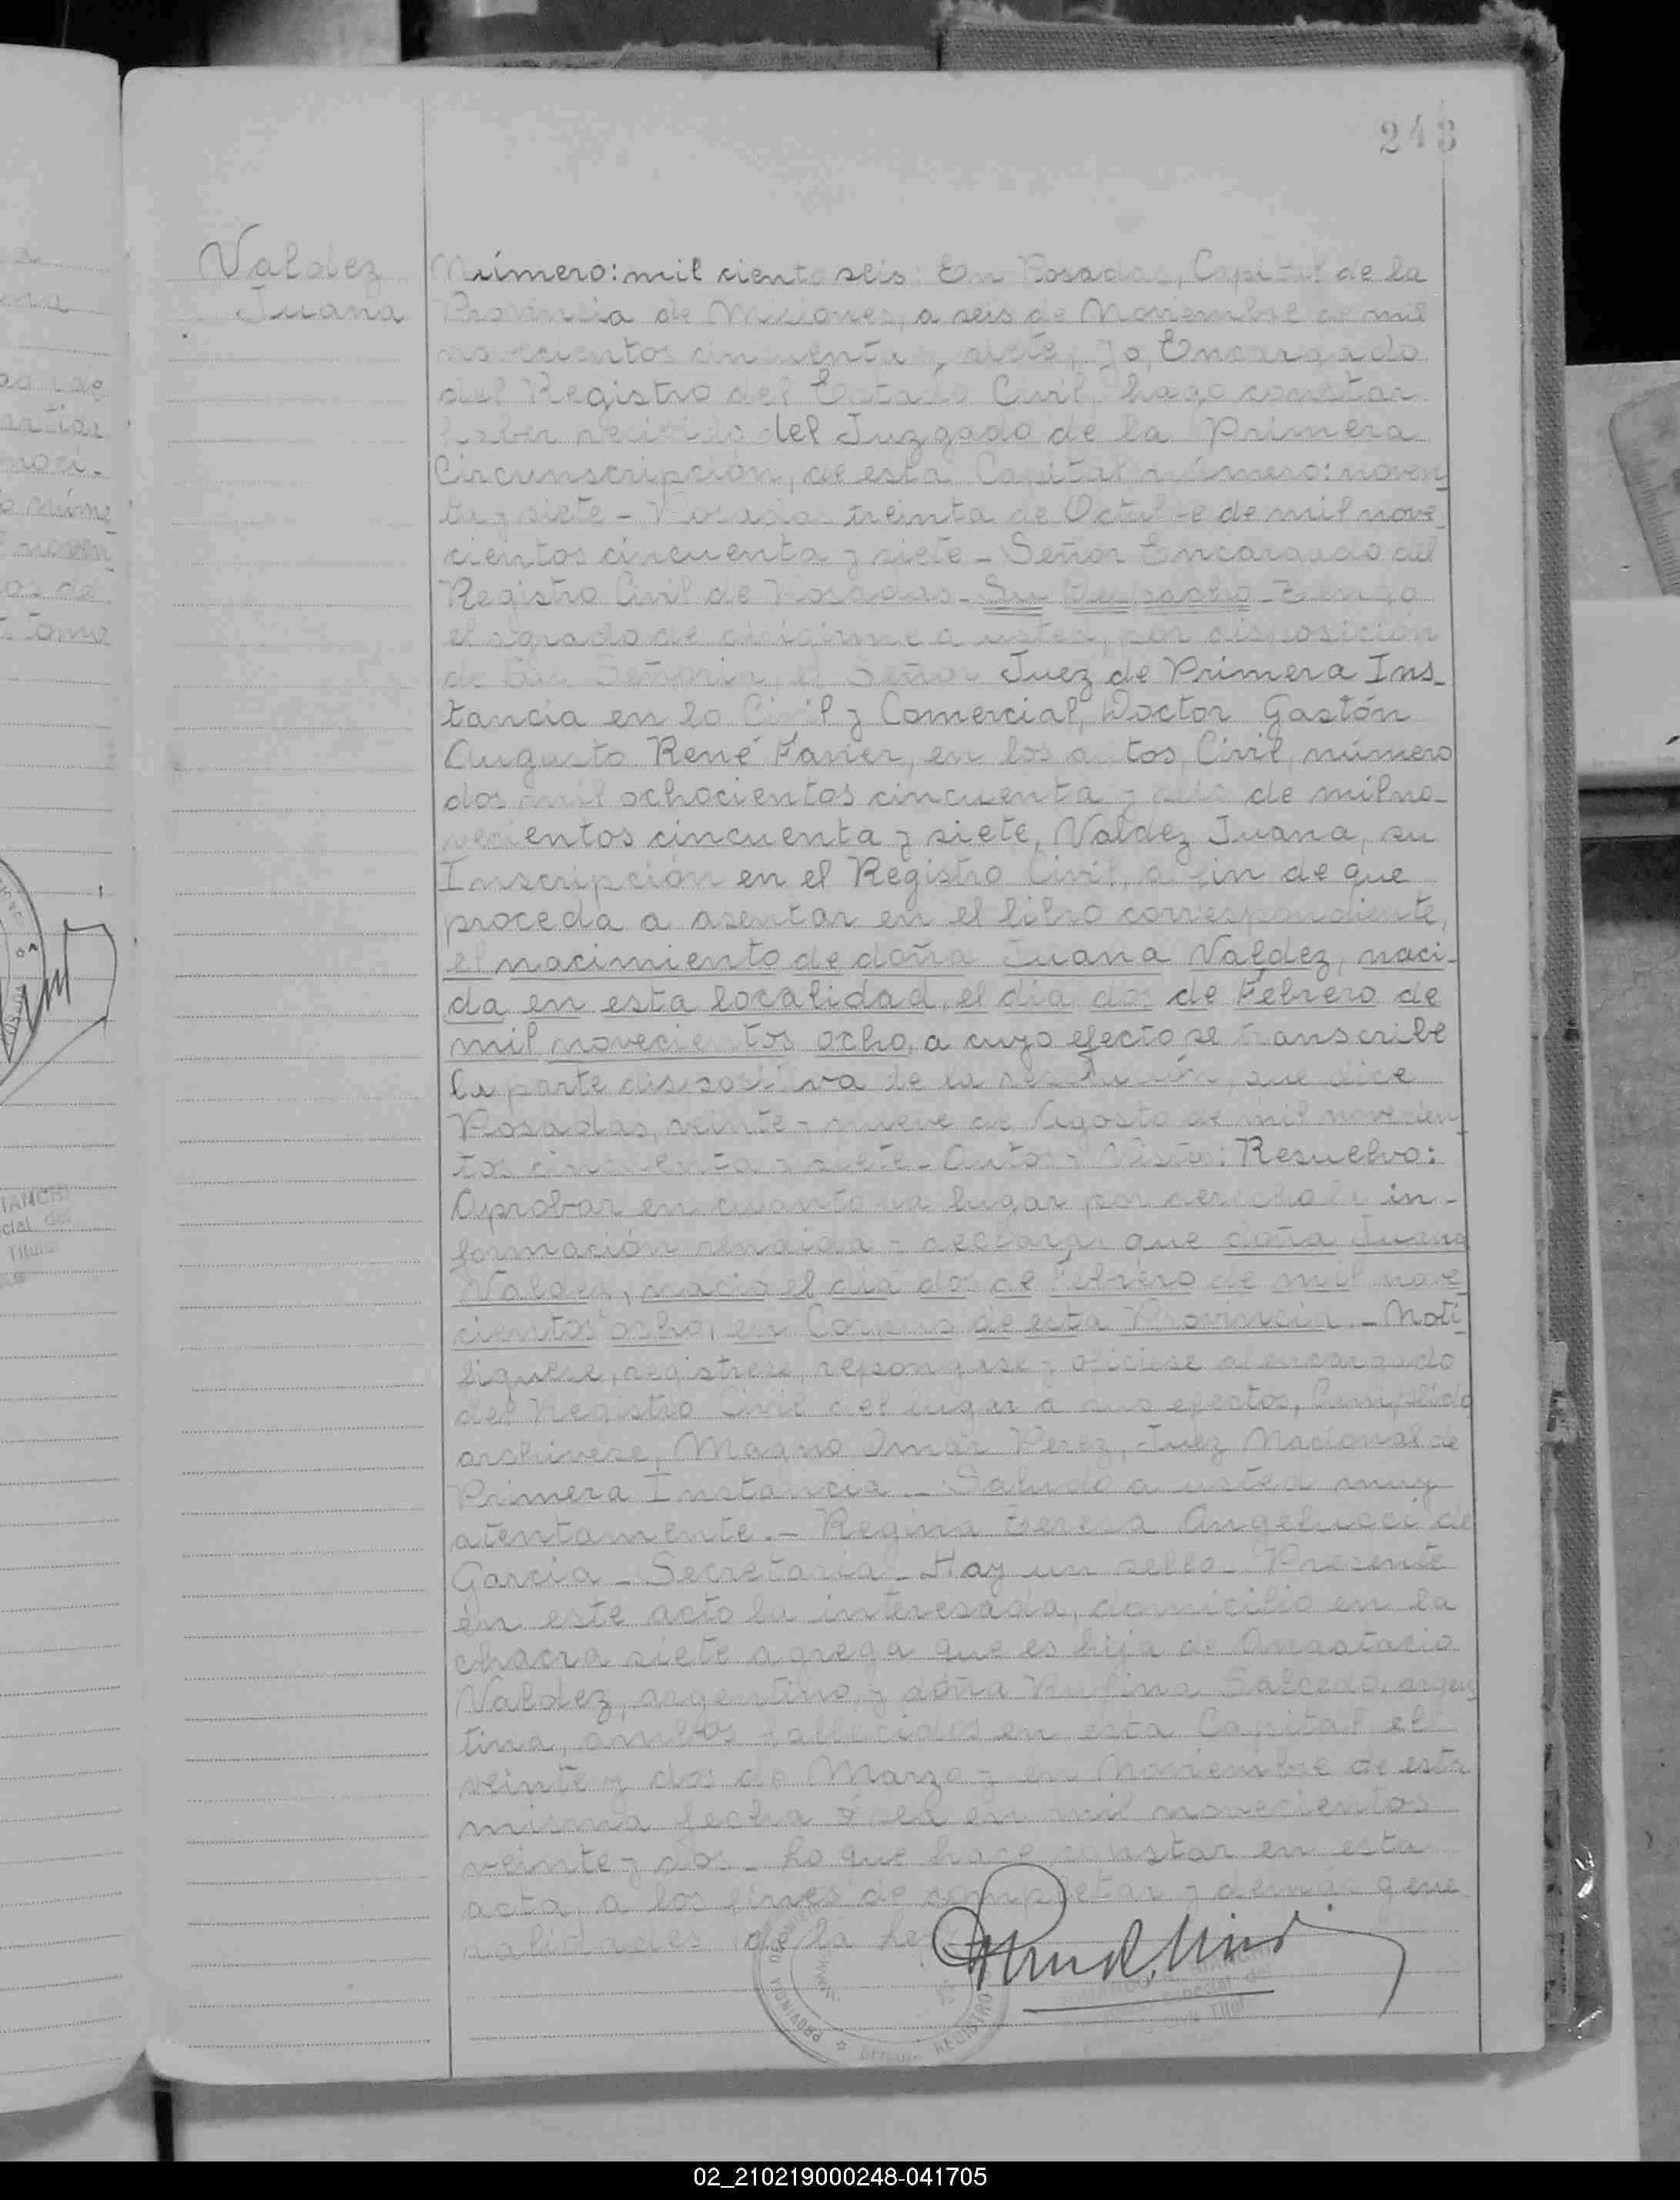 243
Valdez
Juana
Número: mil ciento seis: En Posadas, Capital de la
Provincia de Misiones, a seis de Noviembre de mil
novecientos cincuenta y siete, yo, Encargado
del Registro del Estado Civil, hago constar
haber recibido del Juzgado de la Primera
Circunscripción, de esta Capital número: noven_
ta y siete - Posadas treinta de Octubre de mil nove_
cientos cincuenta y siete - Señor Encargado del
Registro Civil de Posadas - Su Despacho - Tengo
el agrado de dirigirme a usted, por disposición
de Su Señoría, el Señor Juez de Primera Ins_
tancia en lo Civil y Comercial, Doctor Gastón
Augusto René Favier, en los autos, Civil, número
dos mil ochocientos cincuenta y seis de mil no_
vecientos cincuenta y siete, Valdez Juana, su
Inscripción en el Registro Civil, a fin de que
proceda a asentar en el libro correspondiente,
el nacimiento de doña Juana Valdez, naci_
da en esta localidad, el día dos de Febrero de
mil novecientos ocho, a cuyo efecto se transcribe
la parte dispositiva de la resolución, que dice
Posadas, veinte y nueve de Agosto de mil novecien_
tos cincuenta y siete - Autos y Visto: Resuelvo:
Aprobar en cuanto ha lugar por derecho la in_
formación rendida y declarar que doña Juana
Valdez, nació el día dos de Febrero de mil nove
cientos ocho, en Corpus de esta Provincia. - Noti
fiquese, registrese, repongase y oficiese al encargado
del Registro Civil del lugar a sus efectos, Cumplido
archivese, Magno Omar Perez, Juez Nacional de
Primera Instancia. - Saludo a usted muy
atentamente. - Regina Teresa Angelucci de
Garcia - Secretaria - Hay un sello - Presente
en este acto la interesada, domicilio en la
chacra siete agrega que es hija de Anastacio
Valdez, argentino y doña Rufina Salcedo, argen_
tina, ambos fallecidos en esta Capital el
veinte y dos de Marzo y en Noviembre de esta
misma fecha en mil novecientos
veinte y dos - Lo que hace constar en esta
acta, a los fines de completar y demás gene
ralidades de la
PROVINCIA DE
REGISTRO
Especial del
Titular
02_210219000248-041705